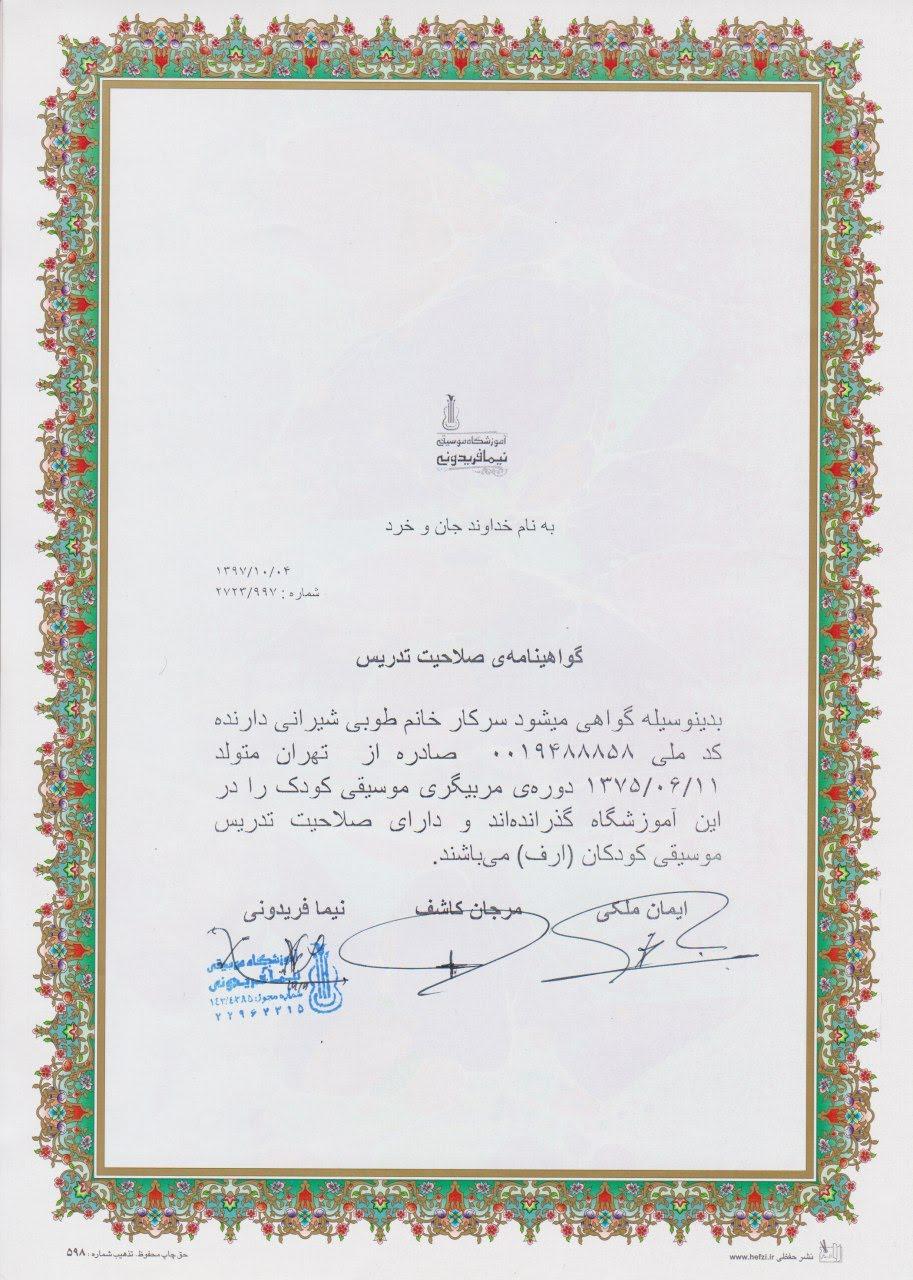 آموزشگاه موسیقی
نیما فریدونی
به نام خداوند جان و خرد
۱۳۹۷/۱۰/۰۴
شماره : ۲۷۲۳/۹۹۷
گواهینامه‌ی صلاحیت تدریس
بدینوسیله گواهی میشود سرکار خانم طوبی شیرانی دارنده
کد ملی ۰۰۱۹۴۸۸۸۵۸ صادره از تهران متولد
۱۳۷۵/۰۶/۱۱ دوره‌ی مربیگری موسیقی کودک را در
این آموزشگاه گذرانده‌اند و دارای صلاحیت تدریس
موسیقی کودکان (ارف) می‌باشند.
ایمان ملکی مرجان کاشف نیما فریدونی
آموزشگاه موسیقی
نیما فریدونی
شماره مجوز: ۱۴۳/۴۳۸۵
۲۲۹۶۲۳۱۵
نشر حفظی www.hefzi.ir
حق چاپ محفوظ. تذهیب شماره : ۵۹۸